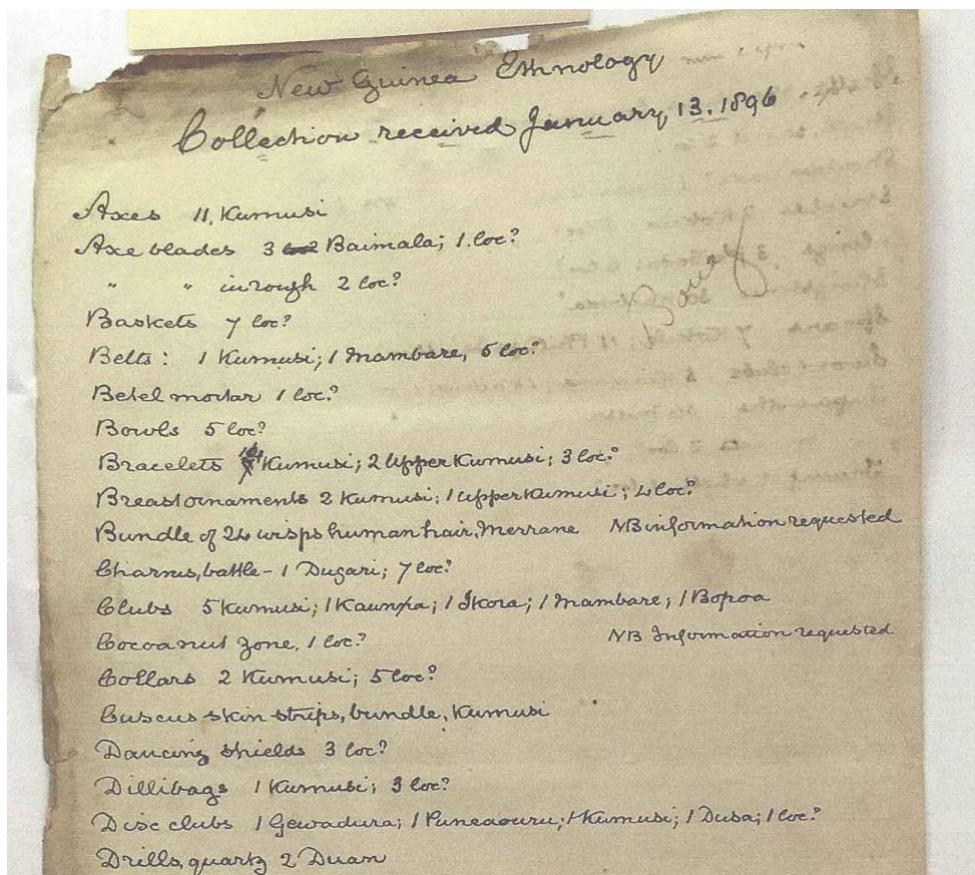 New Guinea Ethnology
Collection received January 13. 1896
Axes 11, Kumusi
Axe blades 3 Baimala; 1 loc?
" " in rough 2 loc?
Baskets 7 loc?
Belts: 1 Kumusi; 1 Mambare, 5 loc?
Betel mortar 1 loc?
Bowls 5 loc?
Bracelets Kumusi; 2 Upper Kumusi; 3 loc?
Breastornaments 2 Kumusi; 1 Upper Kumusi; 4 loc?
Bundle of 24 wisps human hair, Merrane NB information requested
Charms, battle - 1 Dugari; 7 loc?
Clubs 5 Kumusi; 1 Kaunpa; 1 Ikora; 1 Mambare; 1 Bopoa
Cocoanut zone, 1 loc? NB Information requested
Collars 2 Kumusi; 5 loc?
Cuscus skin strips, bundle, Kumusi
Dancing shields 3 loc?
Dillibags 1 Kumusi; 3 loc?
Disc clubs 1 Gewadura; 1 Puneaouru; 1 Kumusi; 1 Dusa; 1 loc?
Drills, quartz 2 Duam